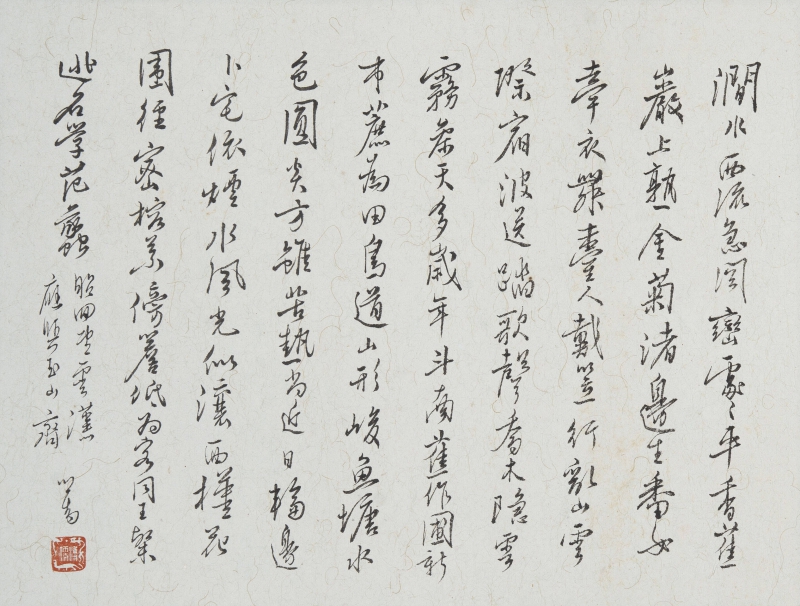 澗水西流急閩巒處々平香蕉
巖上熟金菊渚邊生番女
牽衣舞臺人戴笠行亂山雲
際宿波送踏歌聲喬木隱雲
霧參天多歲年斗南蕉作圃新
市蔗為田鳥道山形峻魚塘水
色圓炎方雖苦熱尚近日輪邊
卜宅依煙水風光似瀼西槿花
圍徑密榕葉傍簷低為客同王粲
逃名學范蠡
昭田
心畬